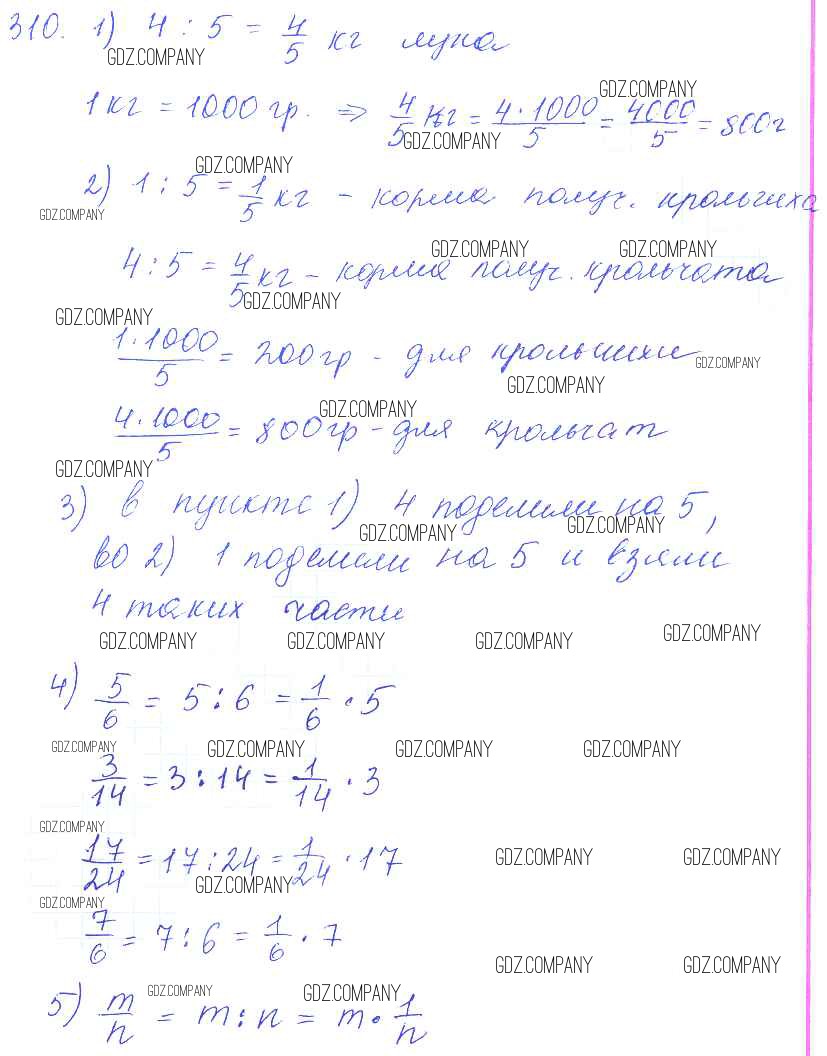 310. 1) 4 : 5 = 4/5 кг лука
GDZ.COMPANY
GDZ.COMPANY
1 кг = 1000 гр. ⇒ 4/5 кг = 4·1000/5 = 4000/5 = 800 г
GDZ.COMPANY
GDZ.COMPANY
2) 1 : 5 = 1/5 кг – корма получ. крольчиха
GDZ.COMPANY
GDZ.COMPANY GDZ.COMPANY
4 : 5 = 4/5 кг – корма получ. крольчата
GDZ.COMPANY
GDZ.COMPANY
1·1000/5 = 200 гр – для крольчихи
GDZ.COMPANY
GDZ.COMPANY
GDZ.COMPANY
4·1000/5 = 800 гр – для крольчат
GDZ.COMPANY
3) в пункте 1) 4 поделили на 5,
GDZ.COMPANY GDZ.COMPANY
во 2) 1 поделили на 5 и взяли
4 таких части
GDZ.COMPANY GDZ.COMPANY GDZ.COMPANY GDZ.COMPANY
4) 5/6 = 5 : 6 = 1/6 · 5
GDZ.COMPANY GDZ.COMPANY GDZ.COMPANY GDZ.COMPANY
3/14 = 3 : 14 = 1/14 · 3
GDZ.COMPANY
17/24 = 17 : 24 = 1/24 · 17
GDZ.COMPANY GDZ.COMPANY
GDZ.COMPANY
GDZ.COMPANY
7/6 = 7 : 6 = 1/6 · 7
GDZ.COMPANY GDZ.COMPANY
GDZ.COMPANY GDZ.COMPANY
5) m/n = m : n = m · 1/n